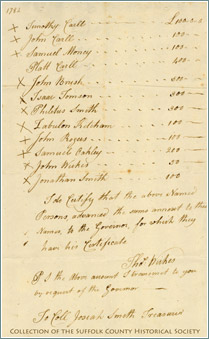 1782
x Timothy Carll - - - £100-0-0
x John Carll - - - 100-
x Samuel Money - - - 100-
Platt Carll - - - 400-
x John Brush - - - 500-
x Isaac Tomson - - 300-
x Philetas Smith - - 300-
x Zabulon Ketcham - - 100-
x John Rogers - - - 100-
x Samuel Oakley - - 200-
x John Wickes - - 50-
x Jonathan Smith - - 100
I do Certify that the above Named
Persons, advanced the same amount to their
Names, to the Governor, for which they
have his Certificate
Thos Wickes
P S the above amount I
to you
by request of the Governor
To Coll Josiah Smith Treasurer
COLLECTION OF THE SUFFOLK COUNTY HISTORICAL SOCIETY